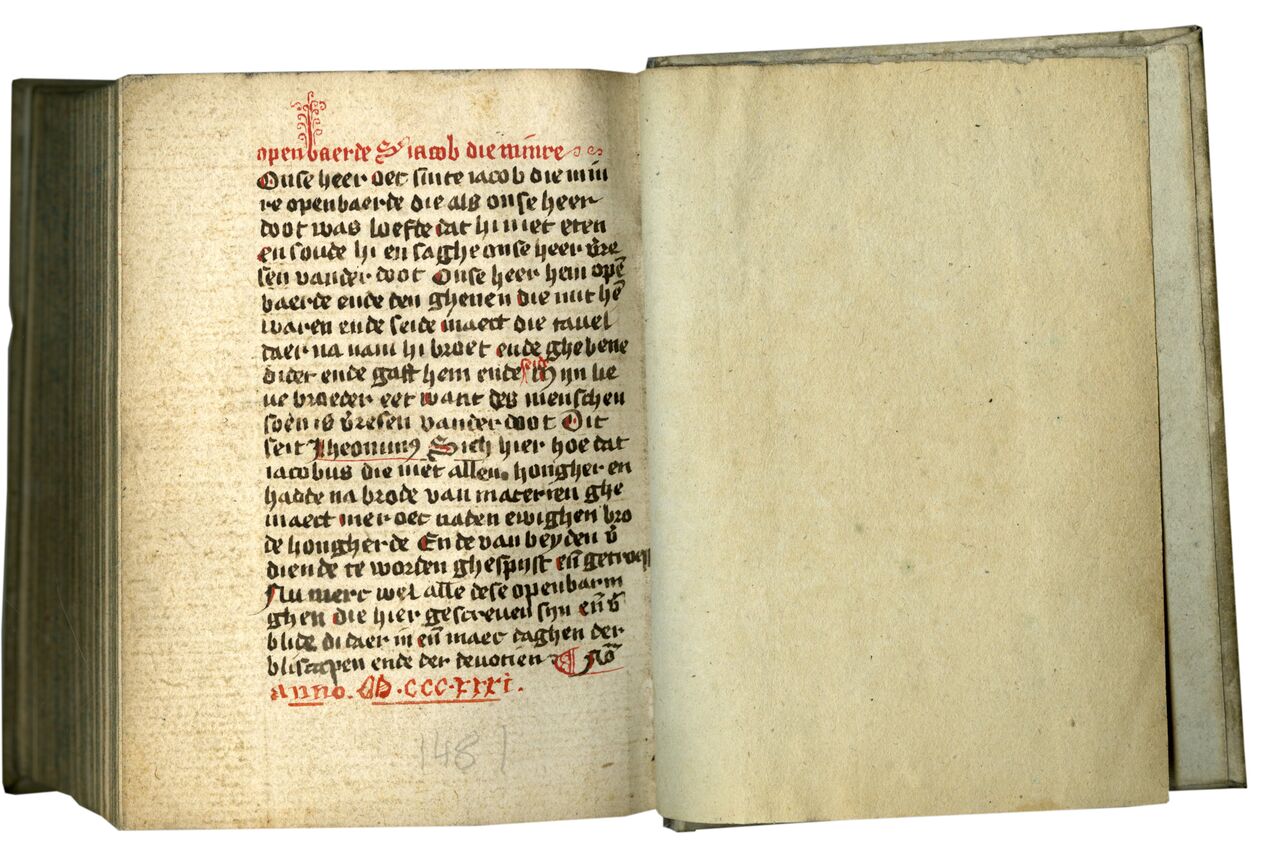 openbaerde S iacob die minre
Onse heer oec sinte iacob die min
re openbaerde die als onse heer
doot was loefte dat hi niet eten
en soude hi en saghe onse heer v̄re
sen vander doot Onse heer hem opē
baerde ende den ghenen die mit hē
waren ende seide maect die tauel
daer na nam hi broet ende ghebene
dider ende gaff hem ende seide Mijn lie
ue broeder eet want des menschen
soen is v̄resen vander doot Dit
seit Jheronimus Sich hier hoe dat
iacobus die niet allen hongher en
hadde na brode van materien ghe
maect mer oec naden ewighen bro
de hongherde Ende van beyden v̄
diende te worden ghespijst eñ getroest
Nu merc wel alle dese openbarin
ghen die hier gescreuen sijn eñ v̄
blide di daer in eñ maec daghen der
bliscapen ende der deuotien
Anno. M.CCC.XXXI.
1481